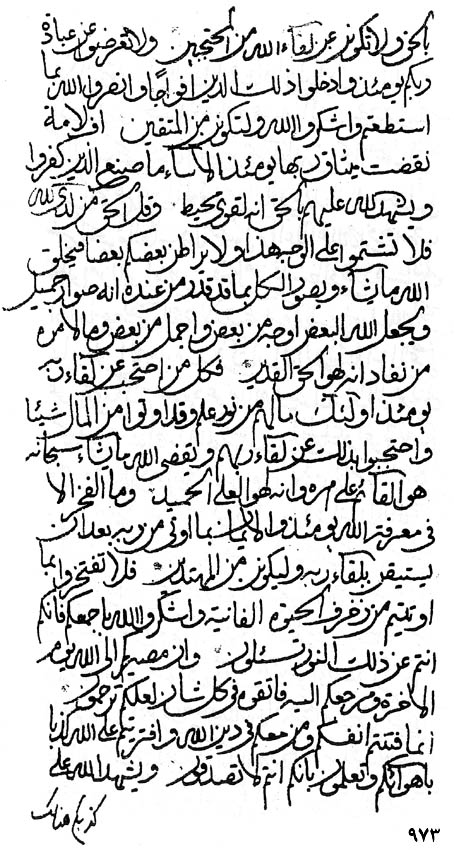 بالحق ولا تكونن عن لقاء الله من المحتجبين ولا تعرضوا عن عبادة
ربكم يومئذ وادخلوا ذلك الدين افواجا وانصروا الله بما
استطعتم واشكروا الله ولتكونن من المتقين اف لامة
نقضت ميثاق ربها يومئذ الا ساء ما صنع الذين كفروا
ويشهد الله عليهم بالحق انه لقوي محيط وقل الحق من لدى الله
فلا تشتموا على الوجه هذا ولا بعضكم بعضا فيخلق
الله ما يشاء ويصور الكل بما قد قدر من عنده انه صوار جميل
ويجعل الله البعض اوجه من بعض واجمل من بعض وما لامره
من نفاد انه هو الحق القدير فكل من احتجب عن لقاء ربه
يومئذ اولئك ما لهم من نور علم وقد اوتوا من المال شيئا
واحتجبوا بذلك عن لقاء ربهم ويقضى الله ما يشاء سبحانه
هو القائم على امره وانه هو العلي الحميد وما الفخر الا
في معرفة الله يومئذ والايمان بما اوتي من ربه بعد ان
ليستيقن بلقاء ربه وليكونن من المهتدين فلا تفتخروا بما
اوتيتم من زخرف الحيوة الفانية واشكروا الله باجمعكم فانكم
انتم عن ذلك النور تسئلون وان مصيركم الى الله يوم
الاخرة ومرجعكم اليه فاتقوه في كل شان لعلكم ترحمون
انما فتنتم انفسكم ومن معكم في دين الله وافتريتم على الله كذبا
باهوائكم وتعلمون بانكم انتم لا تصدقون ويشهد الله على
كذبكم هنالك
٩٧٣